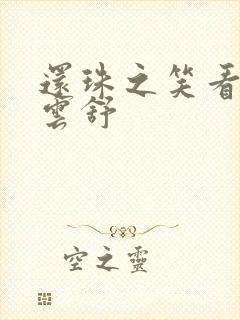 還珠之笑看
雲舒
空之靈